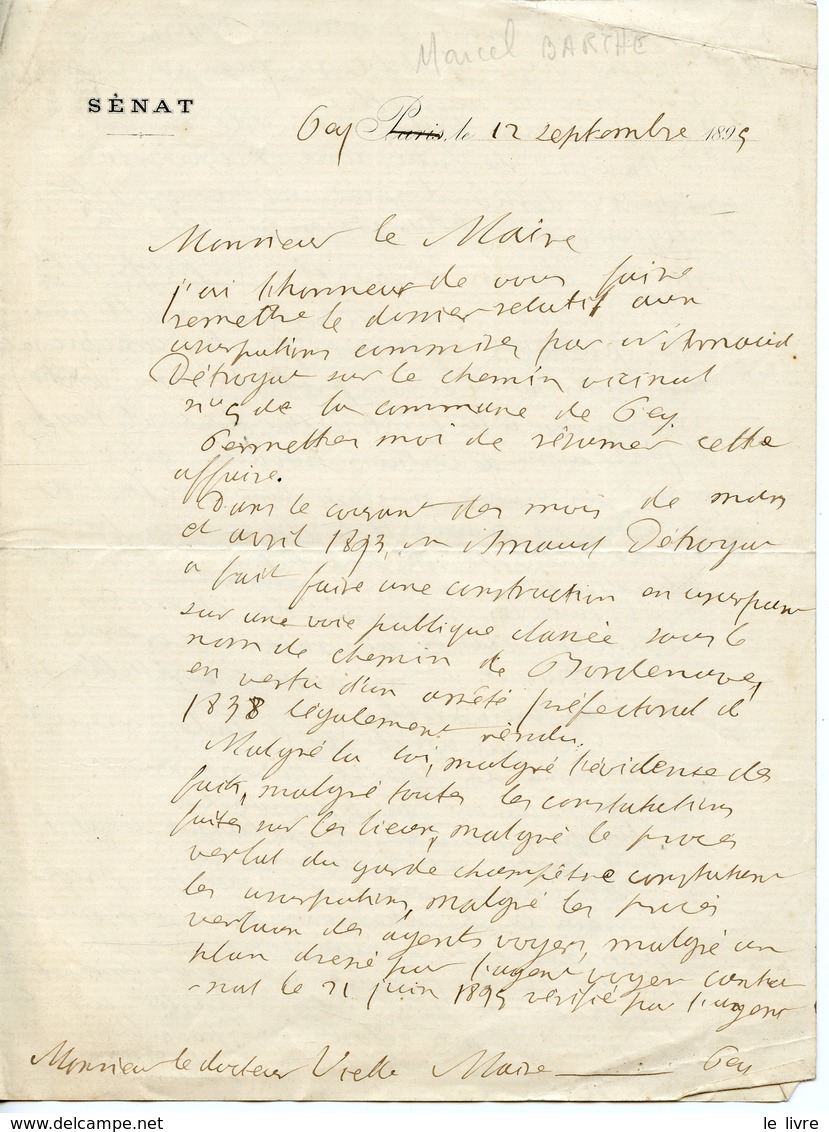 Marcel BARTHE
SÉNAT
Gey Paris, le 12 septembre 1895
Monsieur le Maire
j'ai l'honneur de vous faire
remettre le dossier relatif aux
usurpations commises par Mr Arnaud
Détroyat sur le chemin vicinal
n° 5 de la commune de Gey
Permettez moi de résumer cette
affaire.
Dans le courant des mois de mars
et avril 1893, Mr Arnaud Détroyat
a fait faire une construction en usurpant
sur une voie publique classée sous le
nom de chemin de Bordenave,
en vertu d'un arrêté préfectoral de
1838 légalement rendu.
Malgré la loi, malgré l'évidense des
faits, malgré toutes les constatations
faites sur les lieux, malgré le procès
verbal du garde champêtre constatant
les usurpations, malgré les procès
verbaux des agents voyers, malgré un
plan dressé par l'agent voyer canto
-nal le 21 juin 1895 vérifié par l'agent
Monsieur le docteur Vielle Maire Gey
le livre